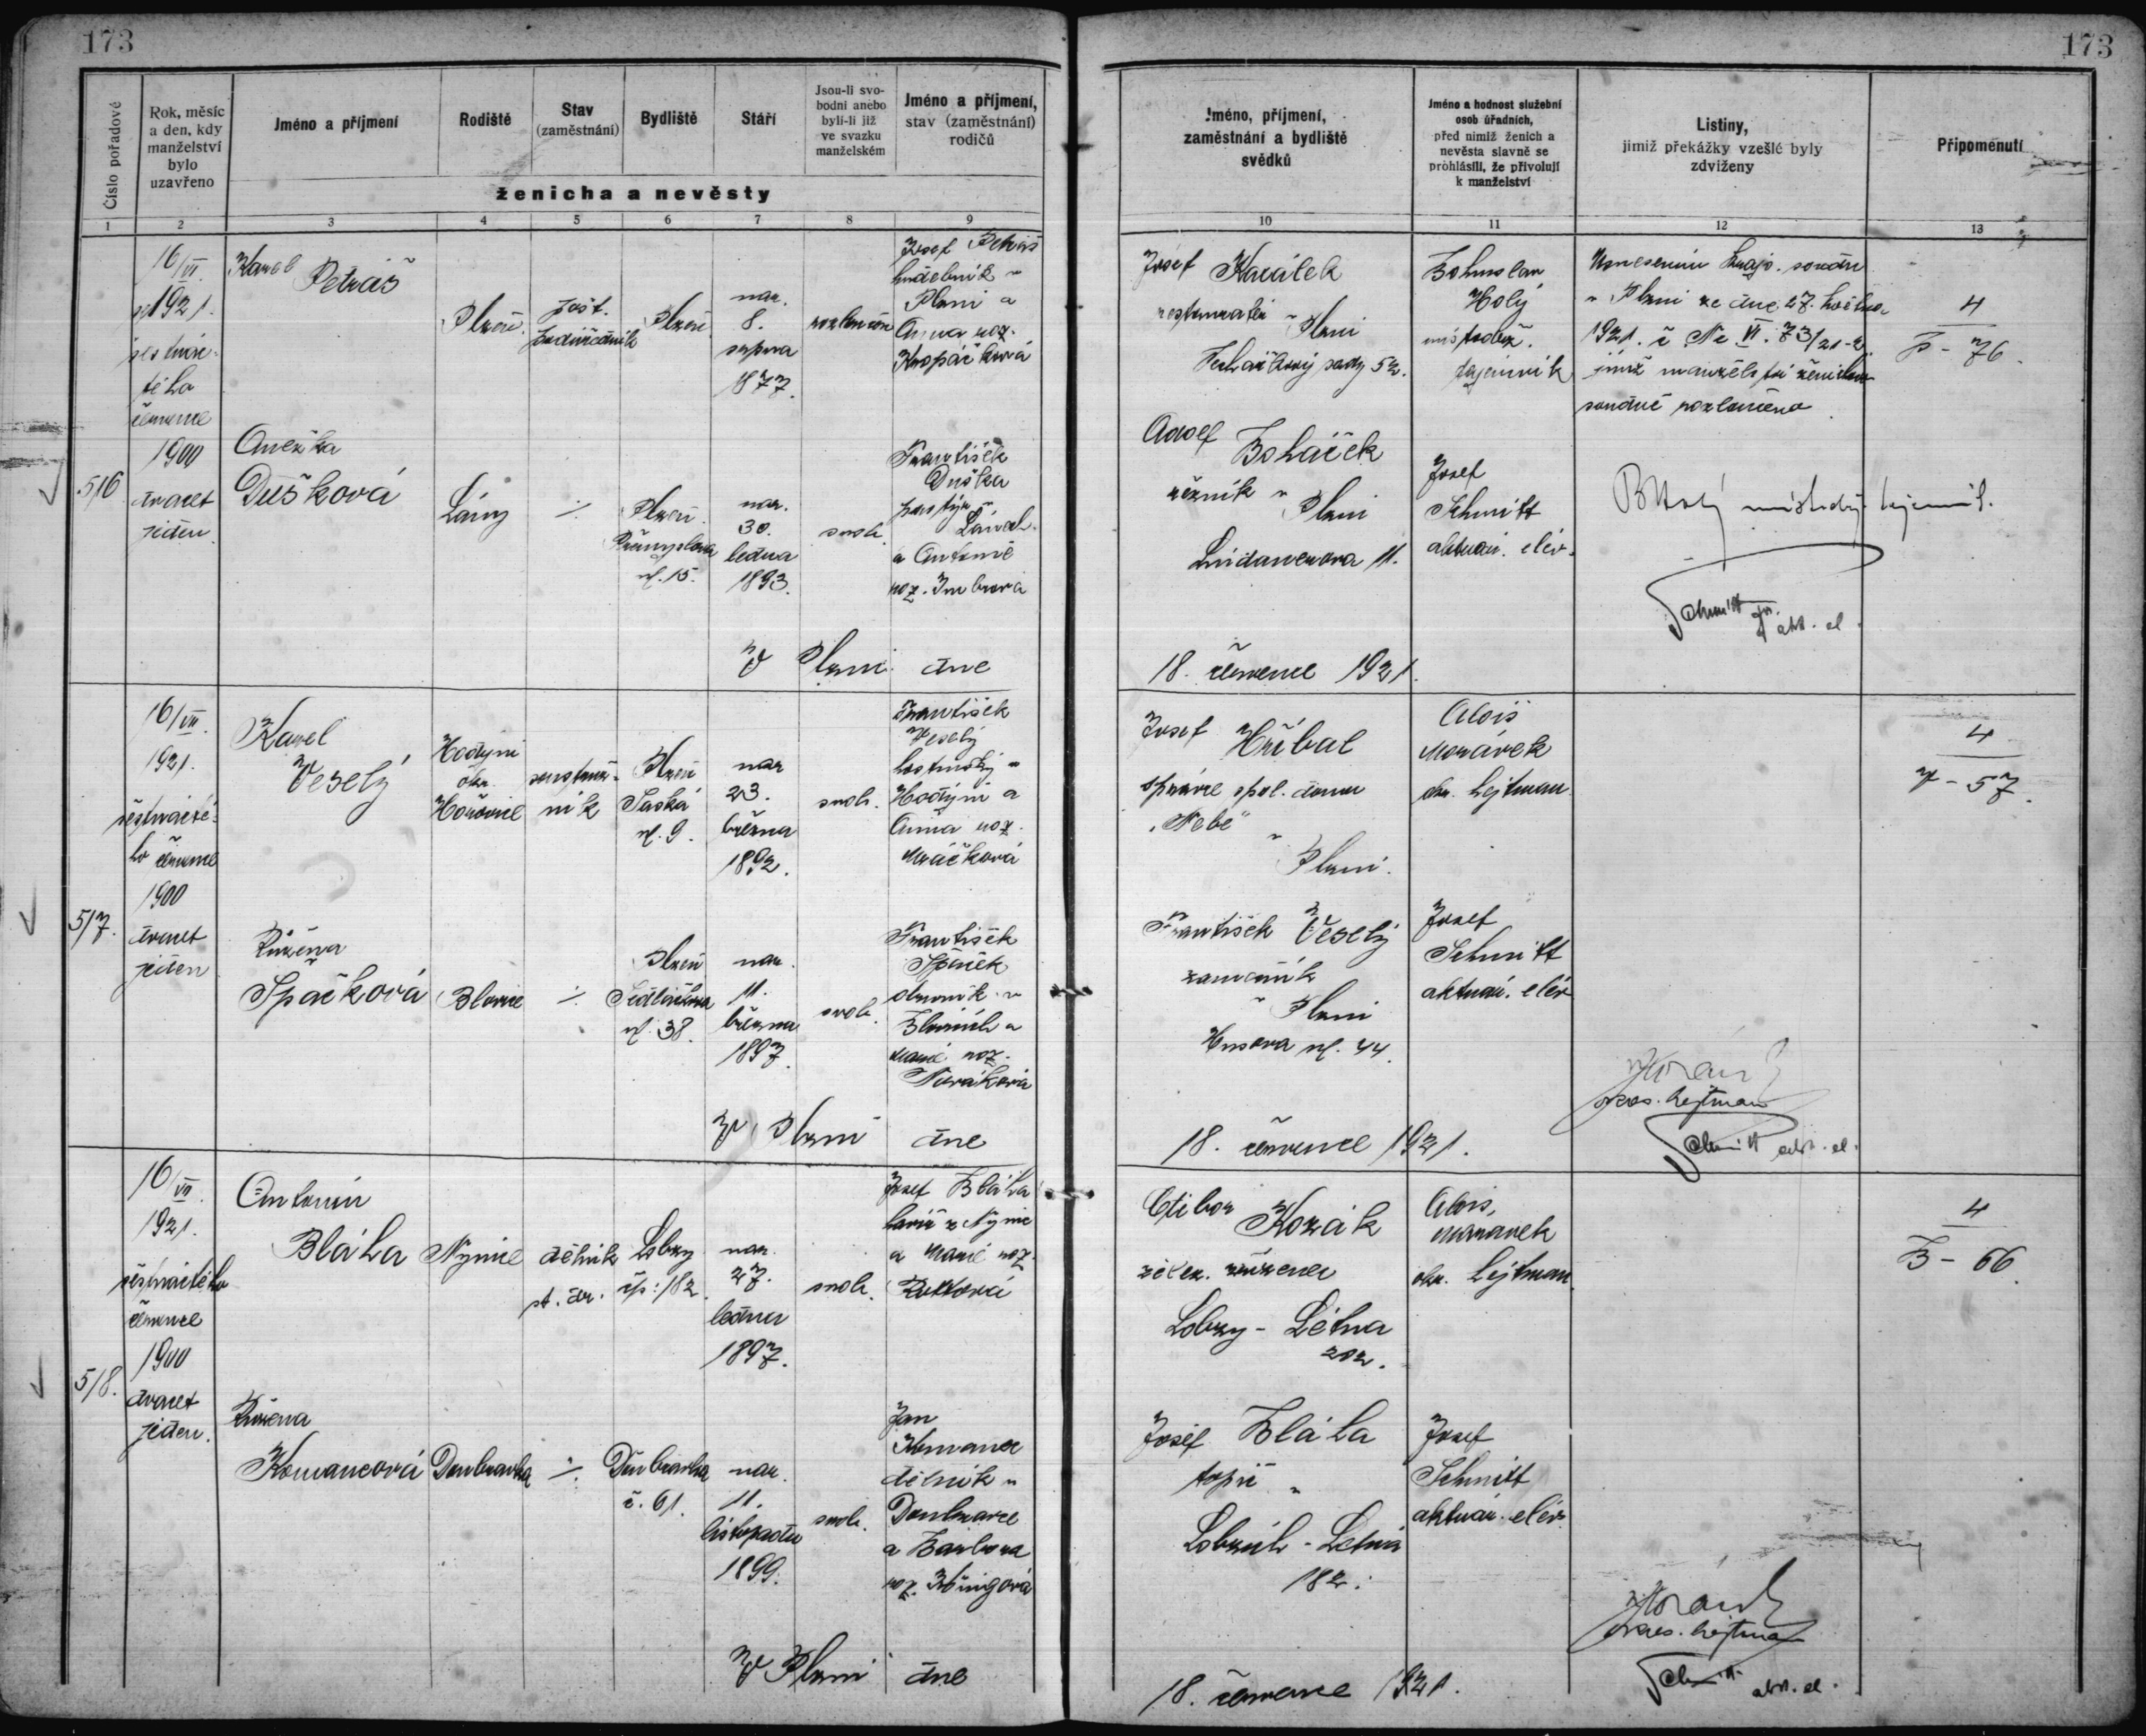 173
173
Číslo pořadové
Rok, měsíc
a den, kdy
manželství
bylo
uzavřeno
Jméno a příjmení
Rodiště
Stav
(zaměstnání)
Bydliště
Stáří
Jsou-li svo-
bodni anebo
byli-li již
ve svazku
manželském
Jméno a příjmení,
stav (zaměstnání)
rodičů
ženicha a nevěsty
Jméno, příjmení,
zaměstnání a bydliště
svědků
Jméno a hodnost služební
osob úřadních,
před nimiž ženich a
nevěsta slavně se
prohlásili, že přivolují
k manželství
Listiny,
jimiž překážky vzešlé byly
zdviženy
Připomenutí
1 2 3 4 5 6 7 8 9
10 11 12 13
516
16/VII
1921.
šestnác-
tého
července
1900
dvacet
jeden
Karel
Petráš
Plzeň.
pošt.
podúředník
Plzeň
nar.
8.
srpna
1877.
rozloučen
Josef Petráš
hudebník v
Plzni a
Anna roz.
Kopáčková
Anežka
Dušková
Lány
Plzeň.
Přemyslova
ul. 15.
nar.
30.
ledna
1893.
svob.
František
Duška
pastýř
Lánech
a Antonie
roz.
V Plzni dne
Josef Kaválek
restauratér
v Plzni
sady 52.
Adolf
Boháček
řezník v
Plzni
Lindauerova 11.
18. července 1921.
Bohuslav
Holý
místopředs.
tajemník
Josef
Schmitt
aktuár. elév.
Usnesením kraj. soudu
v Plzni ze dne 27. května
1921. č Nc VI. 73/21-2
jímž manželství ženichovo
soudně rozloučeno.
BHolý tajemník.
Schmitt jr.
akt. el.
4
P - 76.
517.
16/VII.
1921.
šestnácté-
ho července
1900
dvacet
jeden
Karel
Veselý
Hodyni
okr.
Hořovice
soustruž-
ník
Plzeň
Saská
ul. 9.
nar
23.
března
1892.
svob.
František
Veselý
hostinský v
Hodyni a
Anna roz.
Mráčková
Růžena
Špačková
Blovice
Plzeň
Sedláčkova
ul. 38.
nar.
11.
března
1897.
svob.
František
Špaček
obuvník v
Blovicích a
Marie roz.
Nováková
V Plzni dne
Josef Hříbal
správce spol. domu
"Nebe"
v Plzni.
František Veselý
zámečník
v Plzni
Husova ul. 44.
18. července 1921.
Alois
Morávek
okr. hejtman.
Josef
Schmitt
aktuár. elév
Morávek
okres. hejtman
Schmitt akt. el.
4
V - 57.
518.
16/VII.
1921.
šestnáctého
července
1900
dvacet
jeden.
Antonín
Bláha
Nýrsko
dělník
st. dr.
Lobzy
čp: 182
nar.
27.
ledna
1897.
svob.
Josef Bláha
a Marie roz.
Růžena
Komancová
Doubravka
Doubravka
č. 61.
nar.
11.
listopadu
1899.
svob.
Jan
Komanec
dělník v
Doubravce
a Barbora
roz. Königová
V Plzni dne
Ctibor Kozák
želez. zřízenec
Lobzy - Létna
202.
Josef Bláha
topič v
Lobzích - Letná
182.
18. července 1921.
Alois
Morávek
okr. hejtman
Josef
Schmitt
aktuár. elév.
Morávek
okres. hejtman
Schmitt akt. el.
4
B - 66.